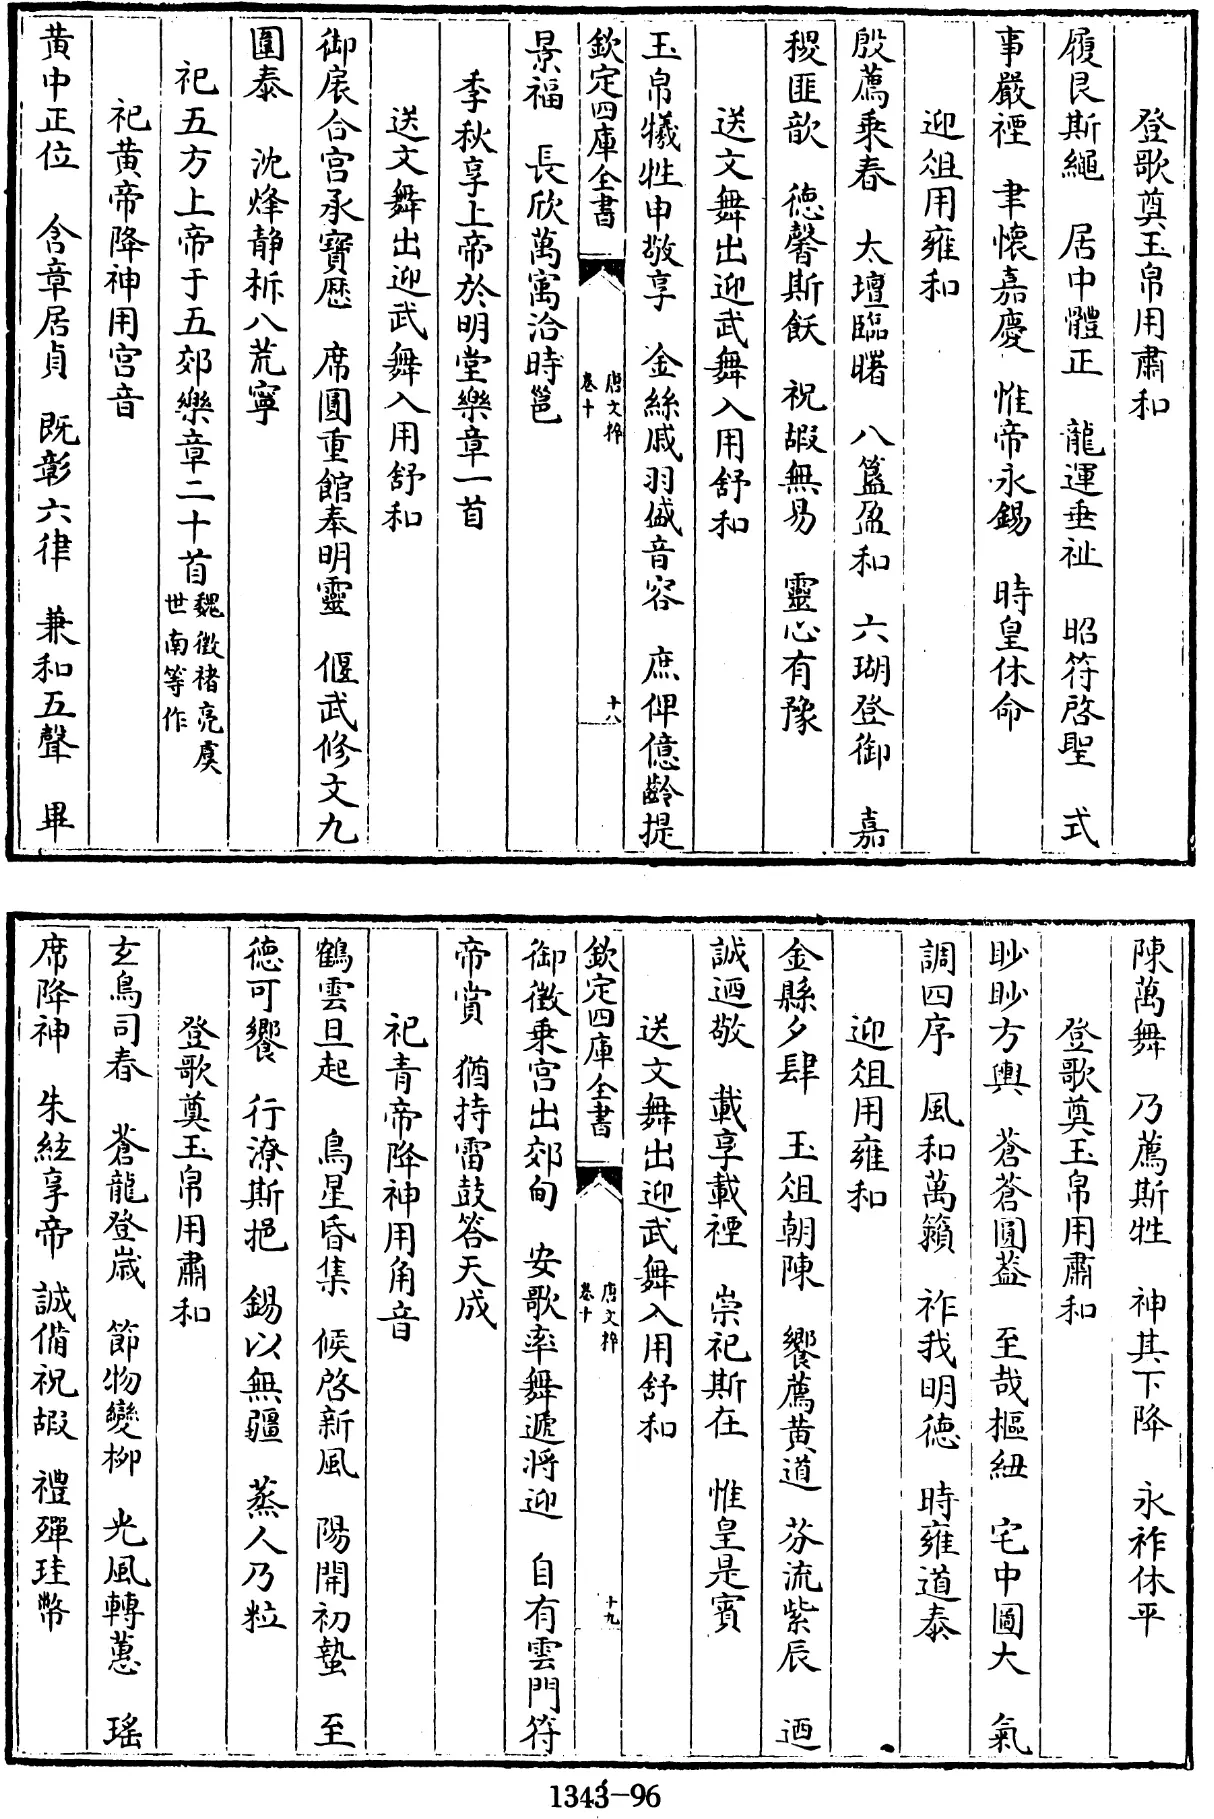 登歌奠玉帛用肅和
履艮斯繩　居中體正　龍運垂祉　昭符啓聖　式
事嚴禋　聿懷嘉慶　惟帝永錫　時皇休命
迎俎用雍和
殷薦乗春　太壇臨曙　八簋盈和　六瑚登御　嘉
稷匪歆　德馨斯飫　祝嘏無易　靈心有豫
送文舞出迎武舞入用舒和
玉帛犧牲申敬享　金絲戚羽盛音容　庶俾億齡提
欽定四庫全書
唐文粹
卷十
十八
景福　長欣萬㝢洽時邕
季秋享上帝於明堂樂章一首
送文舞出迎武舞入用舒和
御扆合宫承寶厯　席圓重館奉明靈　偃武修文九
圍泰　沈烽静柝八荒寧
祀五方上帝于五郊樂章二十首魏徵褚亮虞世南等作
祀黄帝降神用宫音
黄中正位　含章居貞　既彰六律　兼和五聲　畢
陳萬舞　乃薦斯牲　神其下降　永祚休平
登歌奠玉帛用肅和
眇眇方輿　蒼蒼圓葢　至哉樞紐　宅中圖大　氣
調四序　風和萬籟　祚我明德　時雍道泰
迎俎用雍和
金縣夕肆　玉俎朝陳　饗薦黄道　芬流紫辰　迺
誠迺敬　載享載禋　崇祀斯在　惟皇是賓
送文舞出迎武舞入用舒和
欽定四庫全書
唐文粹
卷十
十九
御徵乗宫出郊甸　安歌率舞遞將迎　自有雲門符
帝賞　猶持雷鼓答天成
祀青帝降神用角音
鶴雲旦起　鳥星昏集　候啓新風　陽開初蟄　至
德可饗　行潦斯挹　錫以無疆　蒸人乃粒
登歌奠玉帛用肅和
玄鳥司春　蒼龍登嵗　節物變栁　光風轉蕙　瑤
席降神　朱絃享帝　誠備祝嘏　禮殫珪幣
1343-96